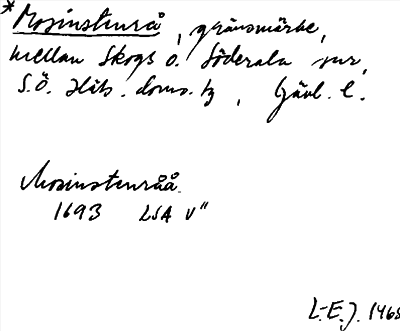 *Mosinstenrå, gränsmärke,
mellan Skogs o. Söderala snr,
S.Ö. Häls. doms. tg, Gävl. l.
Mosinstenråå
1693 LSA V"
L-E.J. 1968